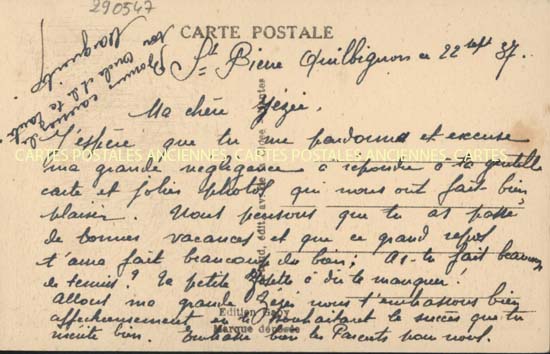 290547
CARTE POSTALE
Bonnes caresses de
ton oncle et de ta tante
Marguerite
St Pierre Quilbignon ce 22 sept 37.
Ma chère Zézée.
J'espère que tu me pardonnes et excuse
CARTES POSTALES ANCIENNES CARTES POSTALES ANCIENNES CARTES
ma grande négligence à répondre à ta gentille
carte et jolies photos qui nous ont fait bien
plaisir. Nous pensons que tu as passé
de bonnes vacances et que ce grand repos
t'aura fait beaucoup du bien; As-tu fait beaucoup
de tennis? Ta petite à dû te manquer!
Allons ma grande Zézée nous t'embrassons bien
affectueusement en te souhaitant le succès que tu
mérite bien. Embrasse bien les Parents pour nous.
Edition Gaby
Marque déposée
édit.